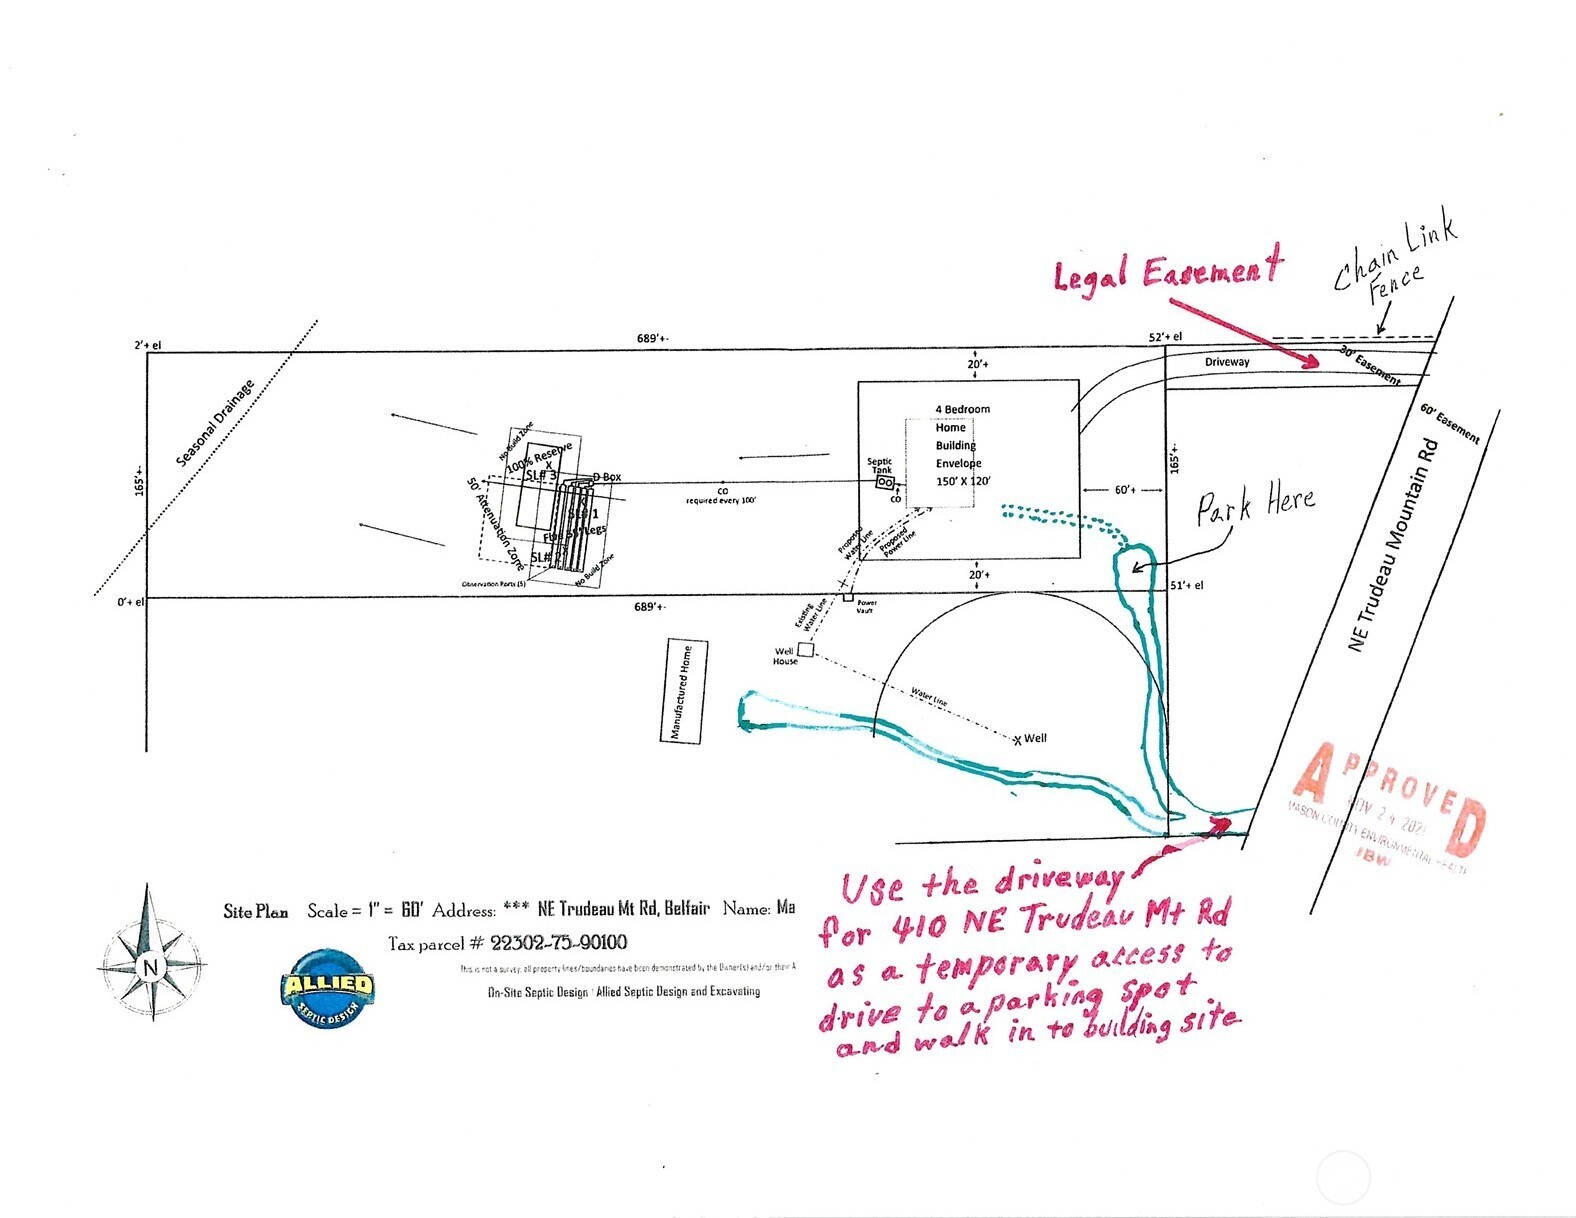 Chain Link
Fence
Legal Easement
2'+ el
689'+-
52'+ el
20'+
Driveway
30' Easement
60' Easement
Seasonal Drainage
165'+-
No Build Zone
100% Reserve
X
SL# 3
D Box
50' Attenuation Zone
SL# 1
SL# 2
No Build Zone
Observation Ports (5)
CO
required every 100'
Septic
Tank
CO
4 Bedroom
Home
Building
Envelope
150' X 120'
60'+
165'+-
Park Here
NE Trudeau Mountain Rd
Proposed
Water Line
Proposed
Power Line
20'+
51'+ el
0'+ el
689'+-
Power
Vault
Existing
Water Line
Well
House
Manufactured Home
Water Line
X Well
APPROVED
NOV 24 202
MASON COUNTY ENVIRONMENTAL HEALTH
JBW
Use the driveway
for 410 NE Trudeau Mt Rd
as a temporary access to
drive to a parking spot
and walk in to building site
Site Plan Scale = 1" = 60' Address: *** NE Trudeau Mt Rd, Belfair Name: Ma
Tax parcel # 22302-75-90100
This is not a survey, all property lines/boundaries have been demonstrated by the Owner(s) and/or their A
On-Site Septic Design : Allied Septic Design and Excavating
N
ALLIED
SEPTIC DESIGN